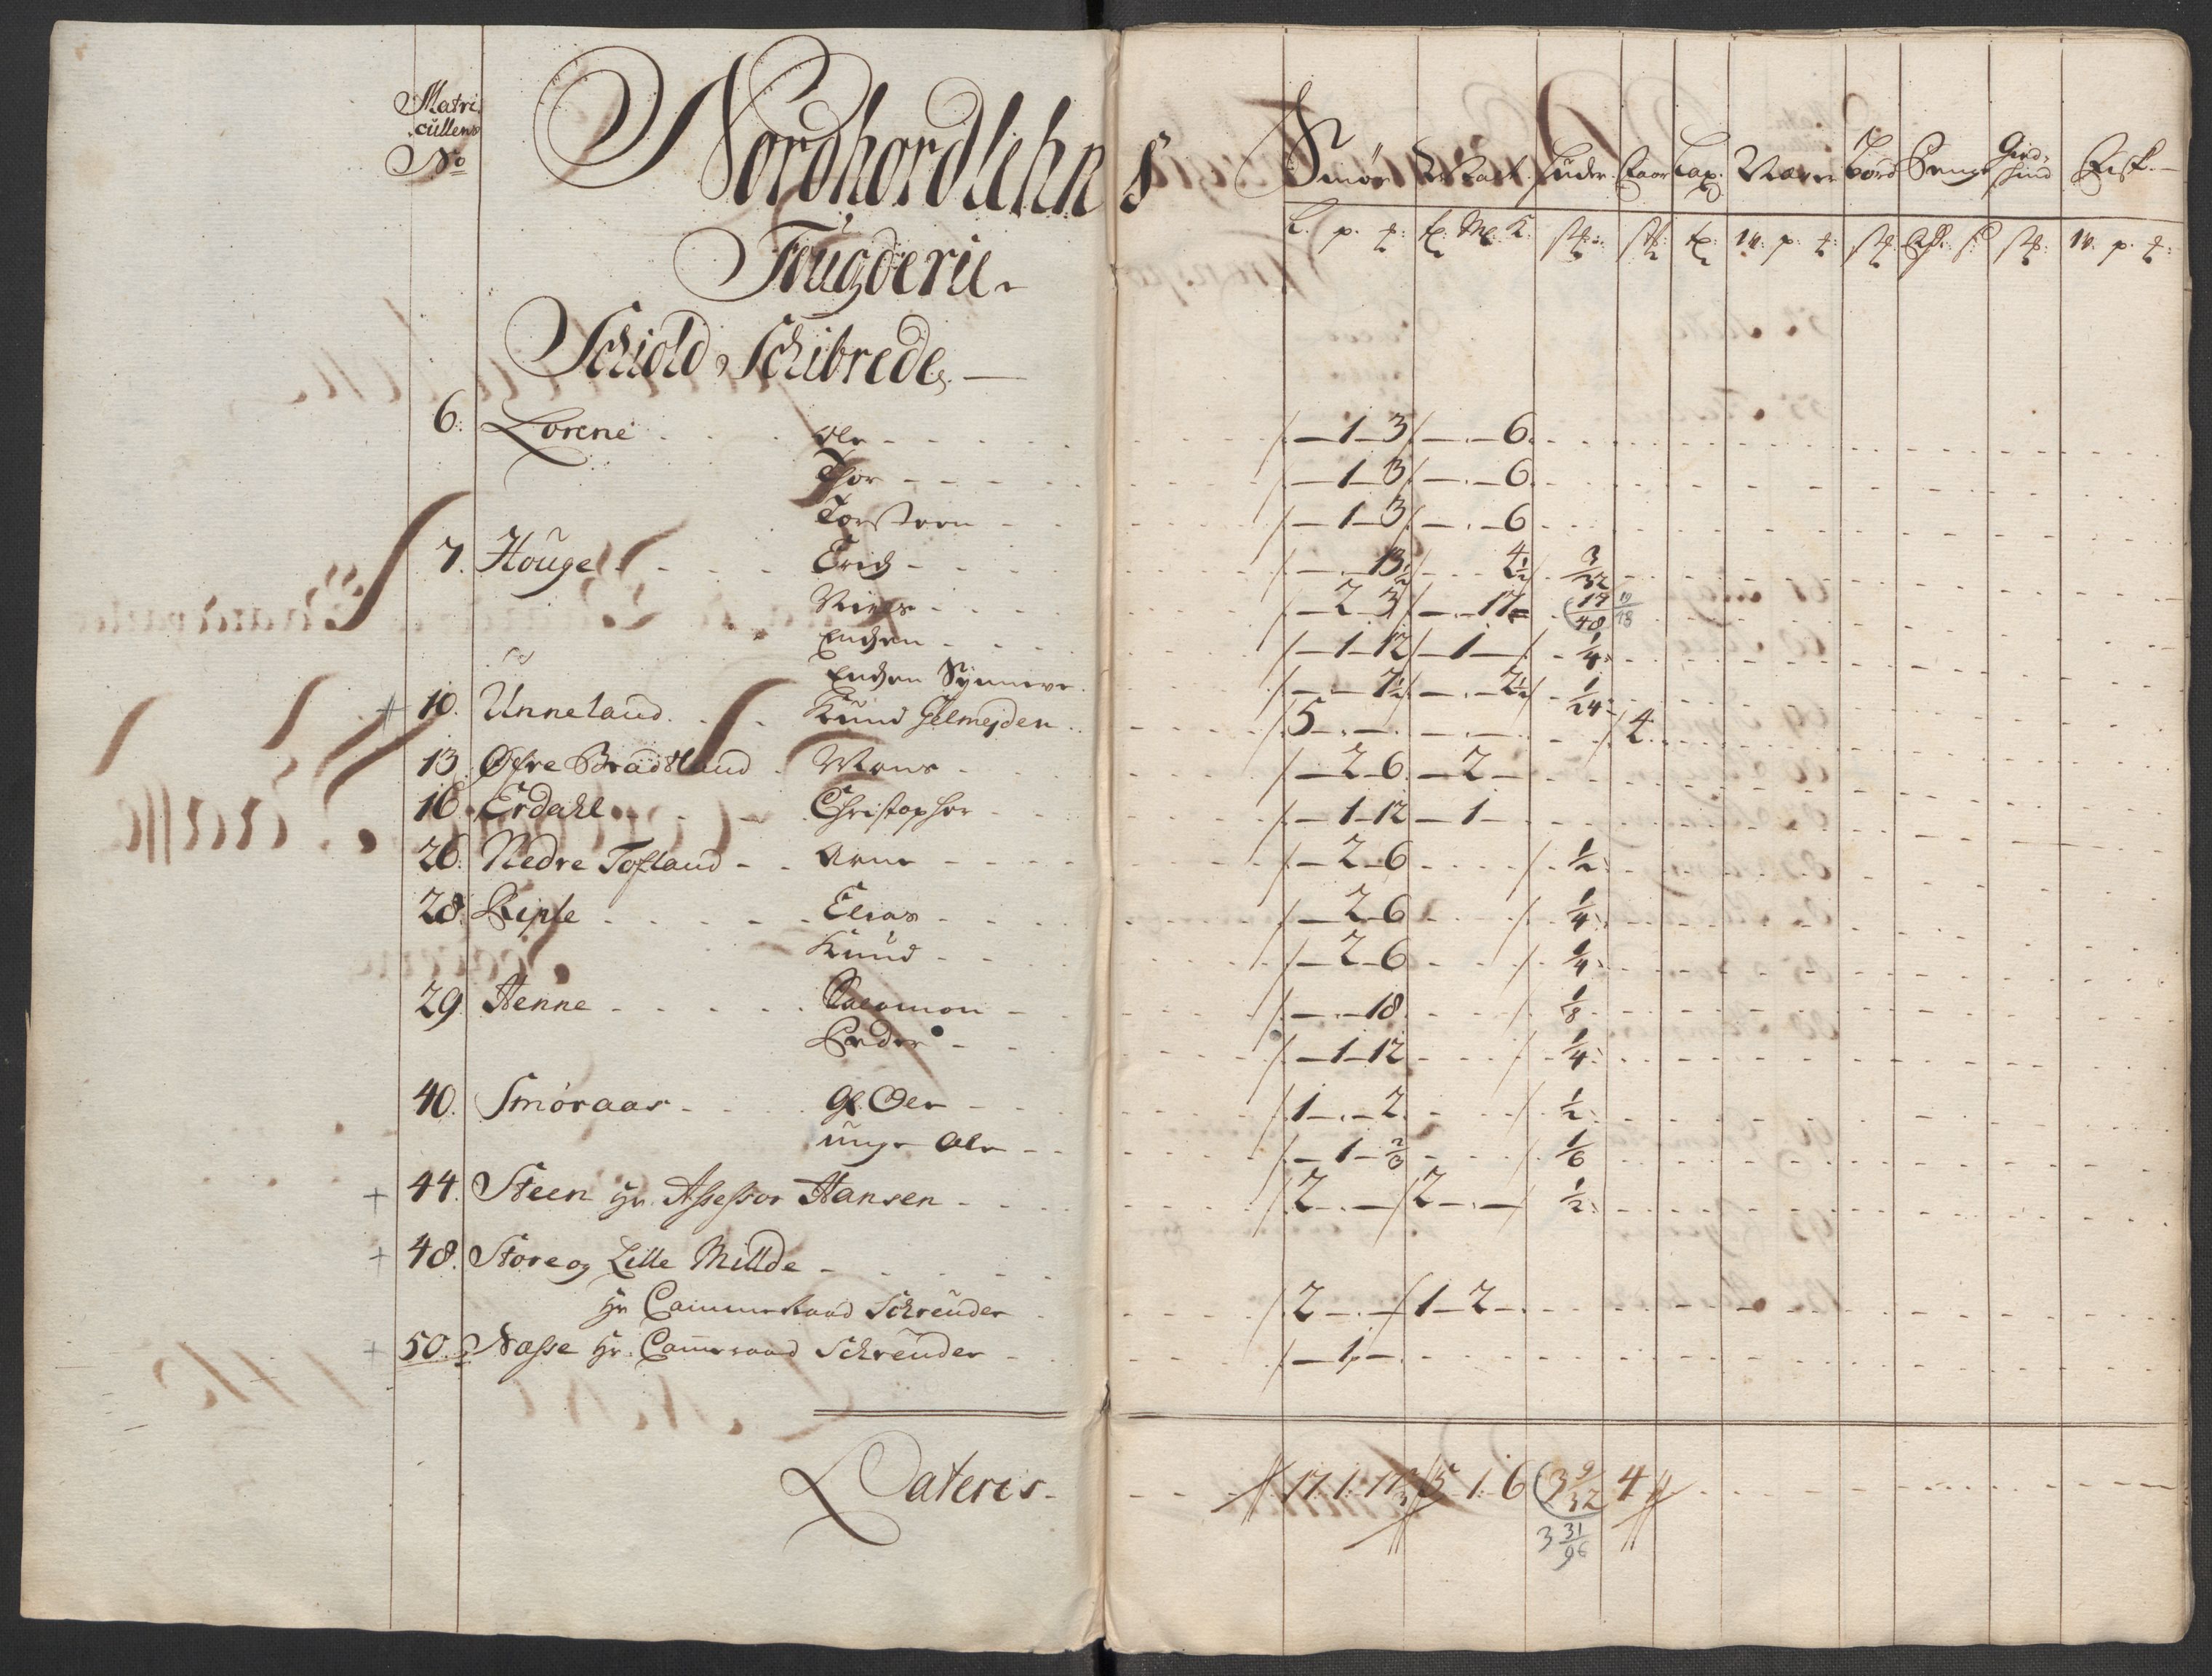 Matri
cullens
No
Nordhordlehns
Fougderie
Schiold Schibrede
Smør Malt Huder Faar Lax Næver Bord Penge Gied, Fisk
hind
L. p. t: t: M: K: st: st: t: w: p. t: st: st: w. p. t:
6. Lorene Ole 1 3 6
Thor 1 3 6
Torsteen 1 3 6
7. Houge Erich 13 1/2 4 1/2 3/32
Niels 2 3 17 17/48 19/48
Enchen 1 12 1 1/4
Enchen Synneve 7 1/2 2 1/2 1/24
+ 10. Unneland Knud Gelmejden 5 4
13. Øfre Bradtland Mons 2 6 2
16. Erdahl Christopher 1 12 1
26. Nedre Tofland Arne 2 6 1/2
28. Riple Elias 2 6 1/4
Knud 2 6 1/4
29. Henne Salomon 18 1/8
Peder 1 12 1/4
40. Smøraas Gl. Ole 1 2 1/2
unge Ole 1 2/3 1/6
+ 44. Steen Hr. Assessor Hansen 2 2 1/2
+ 48. Store og Lille Millde
Hr Cammerraad Schreuder 2 1 2
+ 50. Nasse Hr. Camerraad Schreuder 1
Lateris 17. 1. 17 2/3 5. 1. 6 3 9/32 4
3 31/96